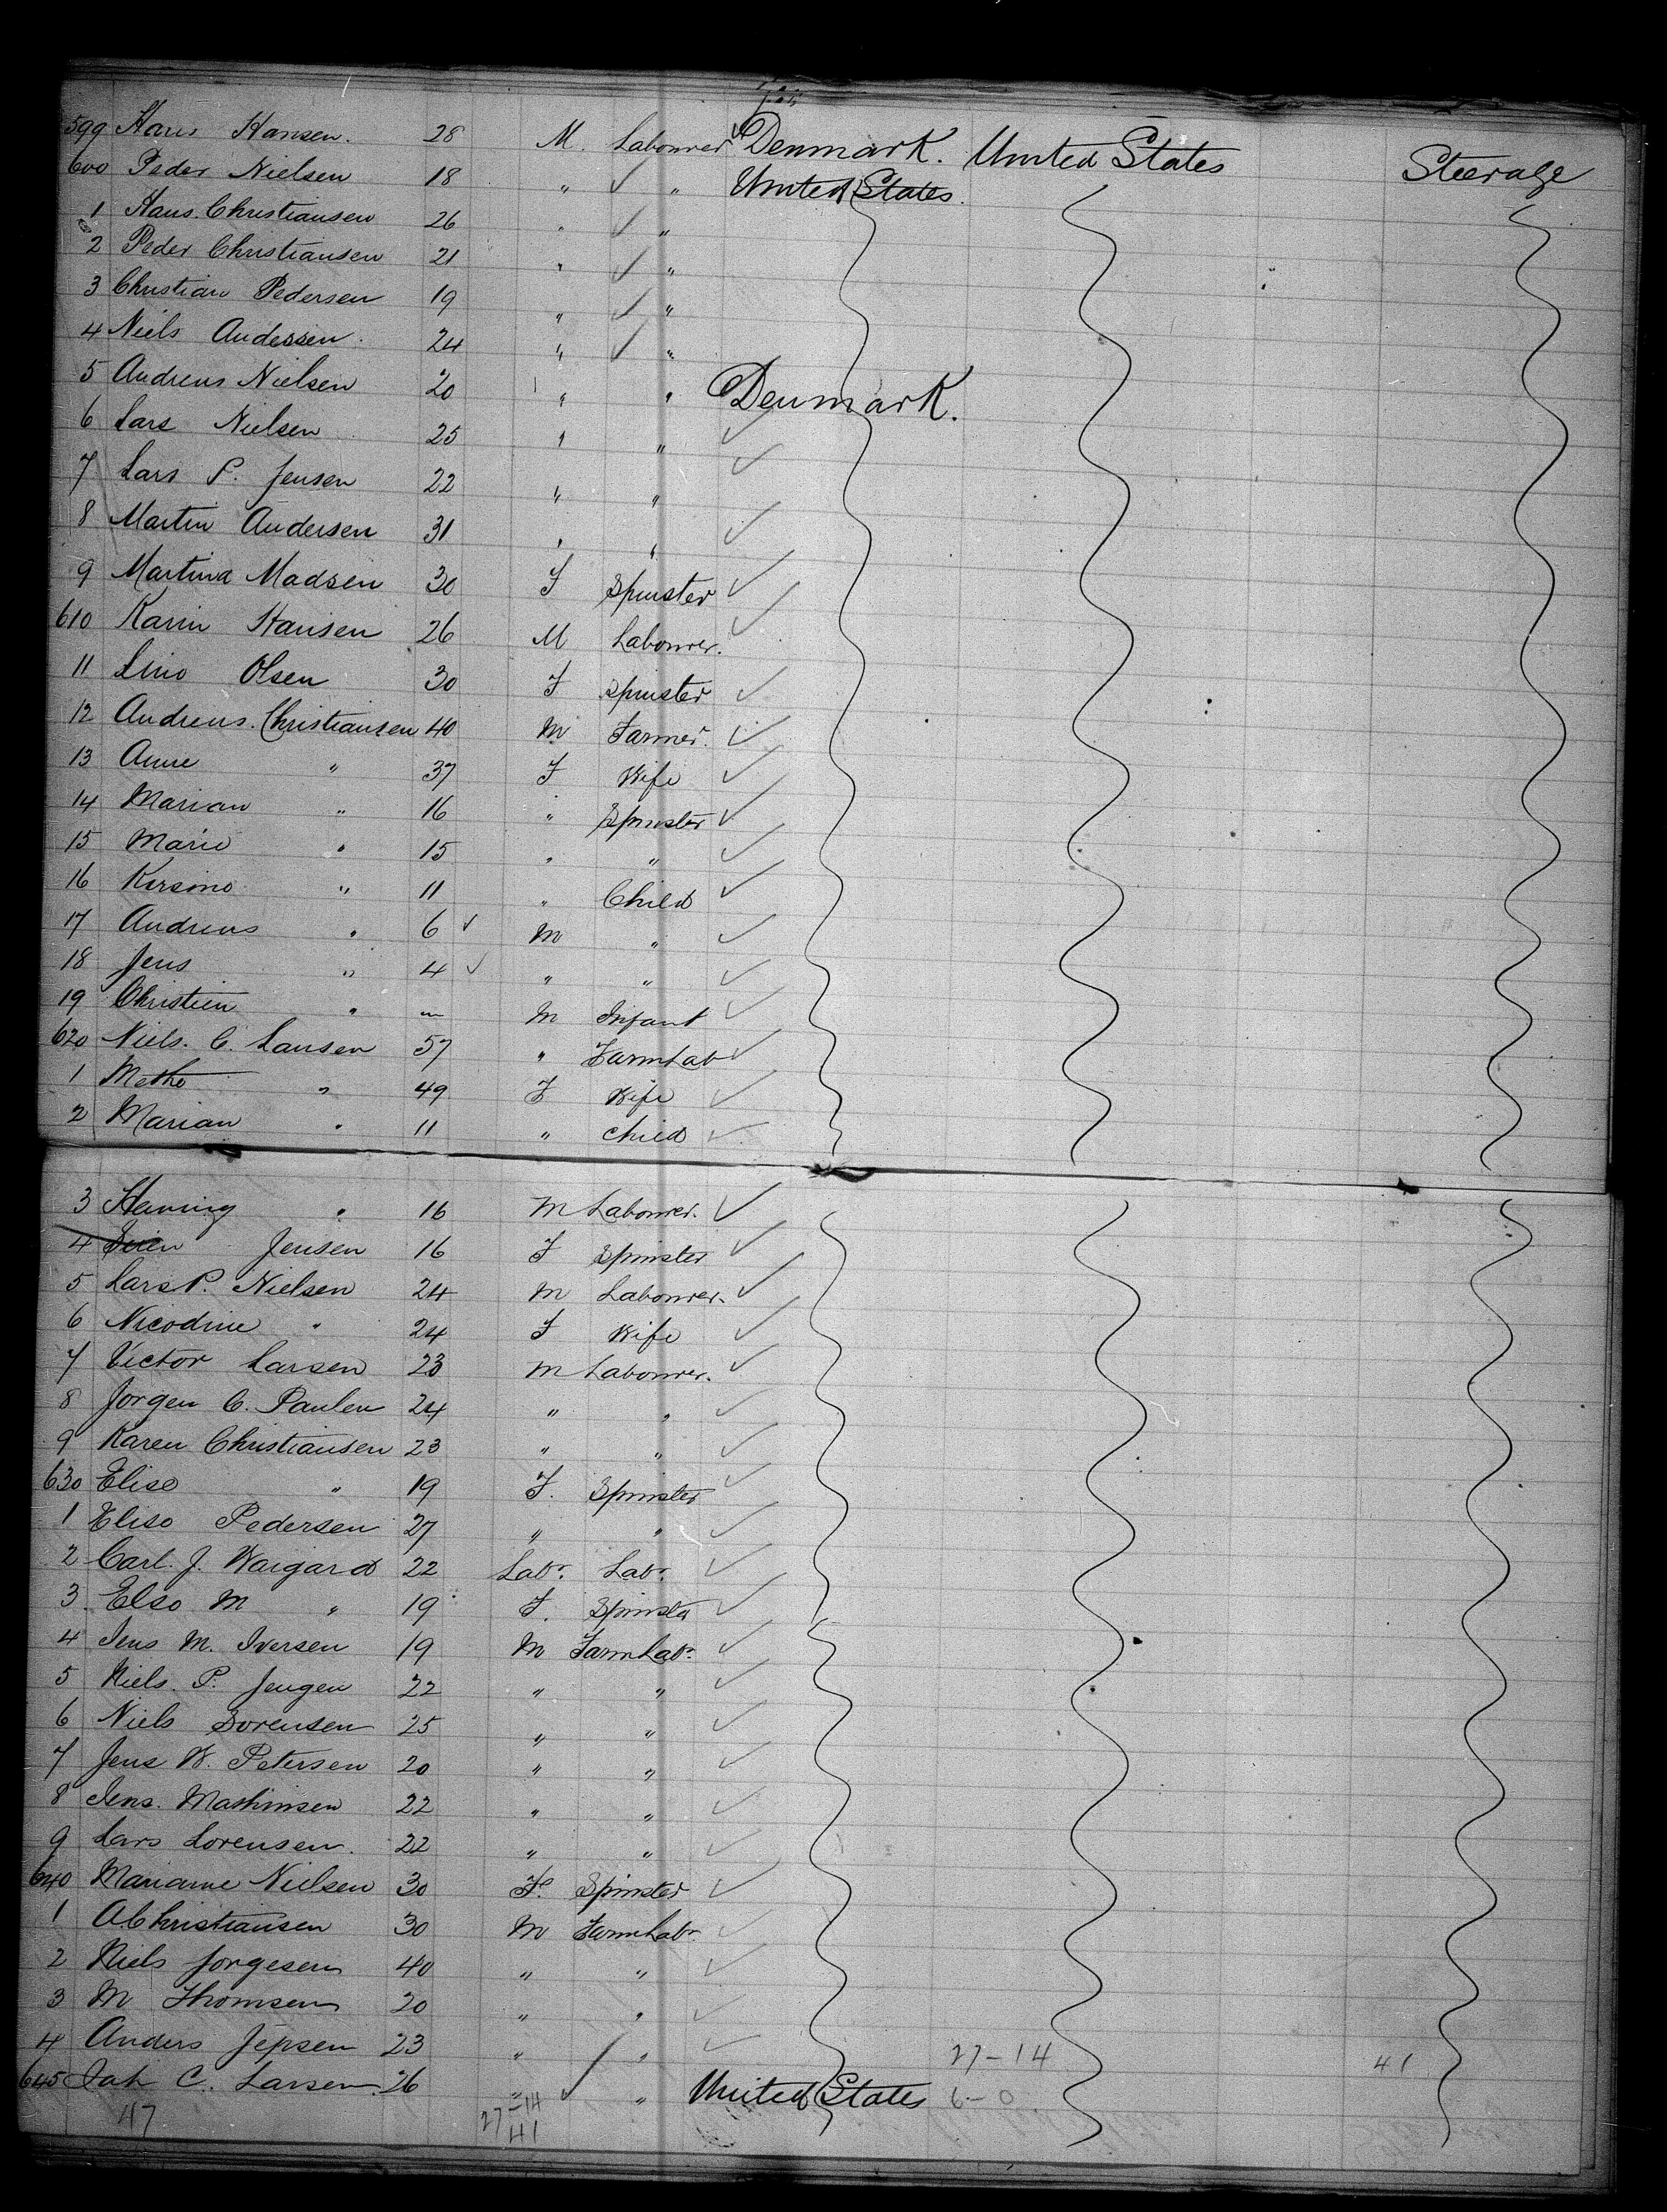 599 Hans Hansen. 28 M. Labourer Denmark. United States Steerage
600 Peder Nielsen 18 " " United States.
1 Hans. Christiansen 26 " "
2 Peder Christiansen 21 " "
3 Christian Pedersen 19 " "
4 Niels Andersen. 24 " "
5 Andreas Nielsen 20 " " Denmark.
6 Lars Nielsen 25 " "
7 Lars P. Jensen 22 " "
8 Martin Andersen 31 " "
9 Martina Madsen 30 F Spinster
610 Karin Hansen 26 M Labourer.
11 Line Olsen 30 F Spinster
12 Andreas. Christiansen 40 M Farmer.
13 Anne " 37 F Wife
14 Marian " 16 " Spinster
15 Marie " 15 " "
16 Kirsine " 11 " Child
17 Andreas " 6 M "
18 Jens " 4 " "
19 Christien " M Infant
620 Niels. C. Lausen 57 " FarmLab
1 Methe " 49 F Wife
2 Marian " 11 " Child
3 Henning " 16 M Labourer.
4 Jensen 16 F Spinster
5 Lars P. Nielsen 24 M Labourer.
6 Nicodine " 24 F Wife
7 Victor Larsen 23 M Labourer.
8 Jorgen C. Paulen 24 " "
9 Karen Christiansen 23 " "
630 Elise " 19 F. Spinster
1 Elise Pedersen 27 " "
2 Carl. J. Waigard 22 Labr. Labr.
3 Else M " 19 F. Spinster
4 Jens M. Iversen 19 M FarmLabr.
5 Niels. P. Jengen 22 " "
6 Niels Sorensen 25 " "
7 Jens W. Petersen 20 " "
8 Jens. Mashinsen 22 " "
9 Lars Lorensen. 22 " "
640 Mariane Nielsen 30 F. Spinster
1 A Christiansen 30 M FarmLabr.
2 Niels Jorgesen 40 " "
3 M Thomsen 20 " "
4 Anders Jepsen 23 " " 27-14 41
645 C. Larsen. 26 " " United States 6-0
47 27-14
41